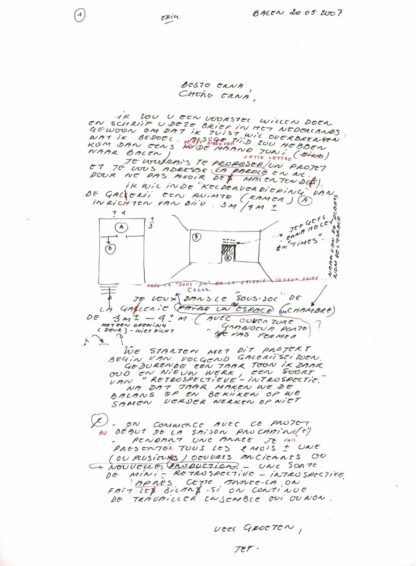 ① BALEN 20.05.2007
BESTE ERNA
CHÈRE ERNA,
IK ZOU U EEN VOORSTEL WILLEN DOEN
EN SCHRIJF U DEZE BRIEF IN HET NEDERLANDS
GEWOON OM DAT IK JUIST WIL OVERBRENGEN
WAT IK BEDOEL. ALS U TIJD ZOU HEBBEN
KOM DAN EENS IN DE MAAND JUNI
NAAR BALEN.
CETTE LETTRE
JE VOUDRAIS TE PROPOSER UN PROJET
ET JE VOUS ADRESSE LA PAROLE EN NL
POUR NE PAS AVOIR DES MALENTENDUS
IK WIL IN DE "KELDERVERDIEPING" VAN
DE GALERIJ EEN RUIMTE (KAMER) Ⓐ
INRICHTEN VAN BIJV. 3M/4M ±
A
B
B
"TIMES"
JE VEUX DANS LE SOUS-SOL DE
LA GALERIE FAIRE UN ESPACE (CHAMBRE)
DE 3M - 4M (AVEC OUVERTURE
MET EEN OPENING
(DEUR) - NIET DICHT
GRANDEUR PORTE
PAS FERMER
WE STARTEN MET DIT PROJEKT
BEGIN VAN VOLGEND GALERIJSEIZOEN.
GEDURENDE EEN JAAR TOON IK DAAR
OUD EN NIEUW WERK, EEN SOORT
VAN "RETROSPECTIEVE-INTROSPECTIE."
NA DAT JAAR MAKEN WE DE
BALANS OP EN BEKIJKEN OF WE
SAMEN VERDER WERKEN OF NIET
- ON COMMENCE AVEC CE PROJET
AU DÉBUT DE LA SAISON PROCHAINE
PENDANT UNE ANNÉE JE VAIS
PRÉSENTER TOUS LES 2 MOIS ± UNE
(OU PLUSIEURS) OEUVRES ANCIENNES OU
NOUVELLE PRODUCTION - UNE SORTE
DE MINI-RETROSPECTIVE - INTROSPECTIVE.
APRÈS CETTE ANNÉE-LA ON
FAIT LES BILANS SI ON CONTINUE
DE TRAVAILLER ENSEMBLE OUI OU NON.
VEEL GROETEN,
JEF.